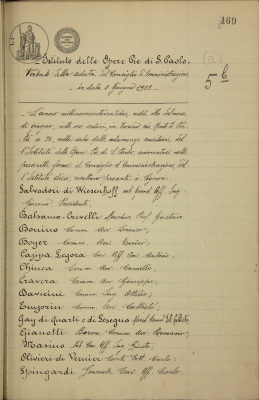 169
Istituto delle Opere Pie di S. Paolo
(12)
Verbale della seduta del Consiglio di Amministrazione
5 b
in data 8 Giugno 1928
L'anno millenovecentoventotto, addì otto del mese
di giugno, alle ore sedici, in Torino via Monte di Pietà
n. 32, nella sala delle adunanze consiliari del
l'Istituto delle Opere Pie di S. Paolo, convocatosi nelle
prescritte forme il Consiglio d'Amministrazione del
l'Istituto stesso, risultano presenti i Signori:
Salvadori di Wiesenhoff nob. Grand Uff. Ing.
Giacomo, Presidente;
Balsamo-Crivelli Marchese Prof. Gustavo
Bonino Comm. Avv. Lorenzo;
Boyer Comm. Avv.
Cappa Legora Cav. Uff. Avv. Antonio;
Chiuca Comm. Avv. Camillo;
Cravera Comm. Avv. Giuseppe;
Davicini Comm. Ing. Attilio;
Comm. Avv.
Gay di Quarti e di Lesegna
Gianotti Barone Comm. Avv. Romano;
Masino Cav. Uff. Ing.
Olivieri di Vernier Conte Dott. Carlo;
Spingardi Generale Cav. Uff. Carlo;